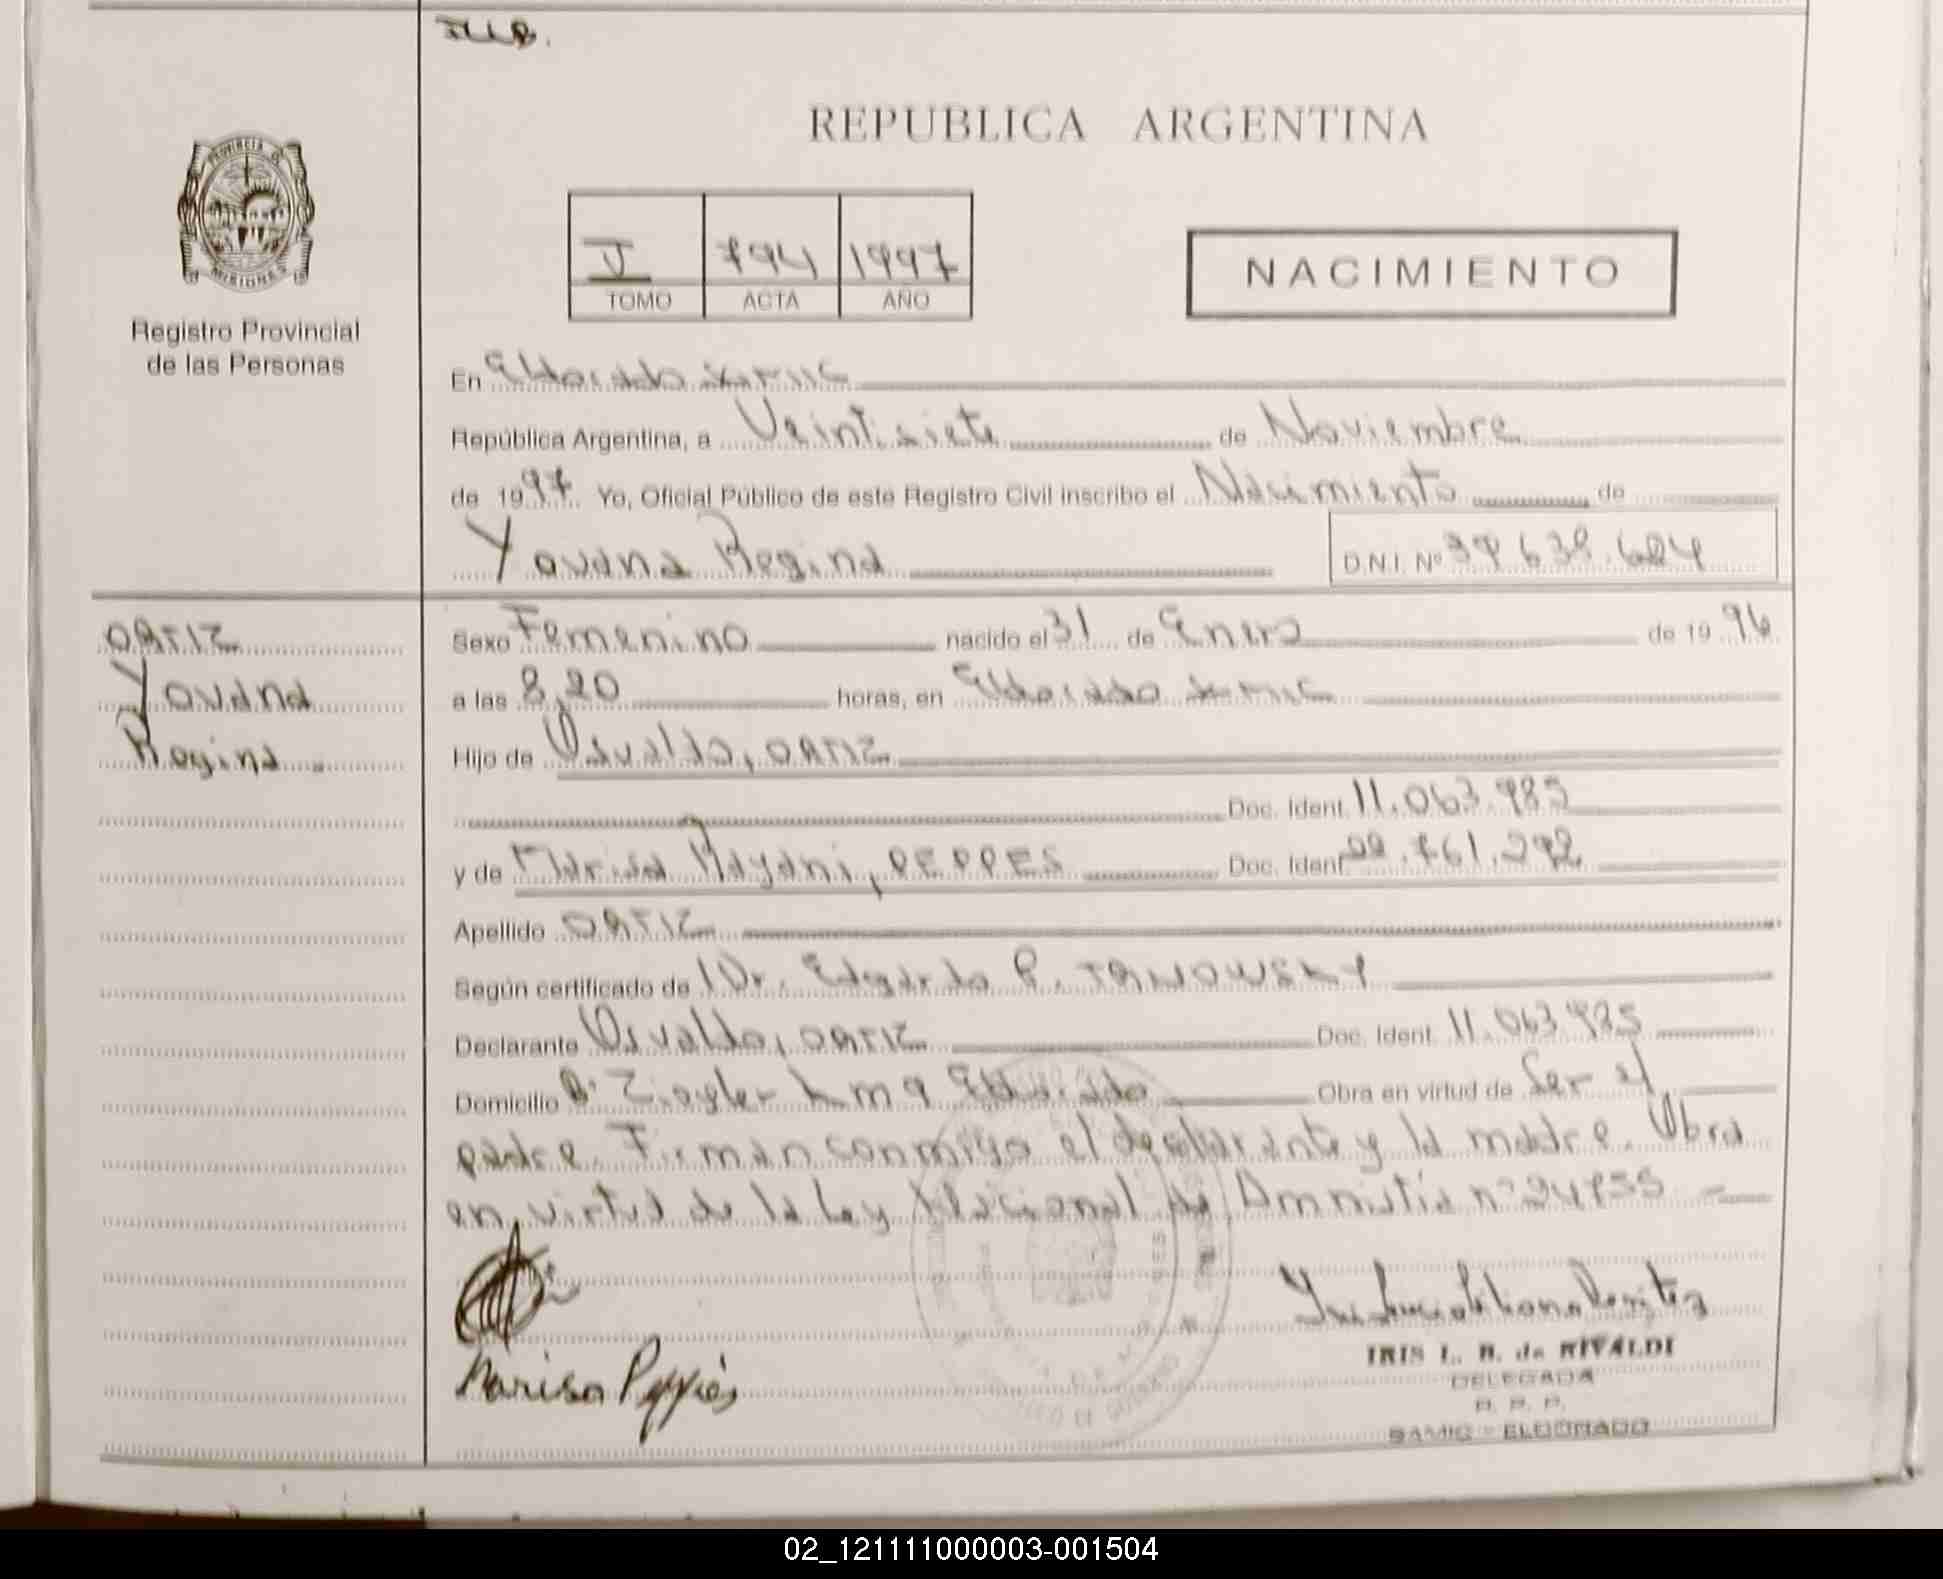 REPUBLICA ARGENTINA
PROVINCIA DE
MISIONES
Registro Provincial
de las Personas
794 1997
TOMO ACTA AÑO
NACIMIENTO
En Eldorado
República Argentina, a Veintisiete de Noviembre
de 1997 Yo, Oficial Público de este Registro Civil inscribo el Nacimiento de
Yovana Regina D.N.I. Nº
ORTIZ
Yovana
Regina
Sexo Femenino nacido el 31 de Enero de 1996
a las 8,20 horas, en Eldorado
Hijo de Osvaldo, ORTIZ
Doc. Ident. 11.063.985
y de Marisa Mayani, PEPPES Doc. Ident.
Apellido ORTIZ
Según certificado de Dr. Edgardo P.
Declarante Osvaldo, ORTIZ Doc. Ident. 11.063.985
Domicilio B. Ziegler km 9 Eldorado Obra en virtud de Ser el
padre. Firman conmigo el declarante y la madre. Obra
en virtud de la Ley Nacional de Amnistía nº 24755
IRIS L. B. de RIVALDI
DELEGADA
R. P. P.
SAMIC - ELDORADO
02_121111000003-001504